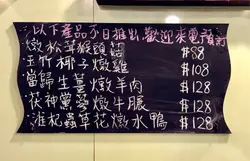 以下產品不日推出,歡迎來電預訂
燉松茸猴頭菇 $88
玉竹椰子燉雞 $108
當歸生薑燉羊肉 $128
茯神黨蔘燉牛𦟌 $128
淮杞蟲草花燉水鴨 $128